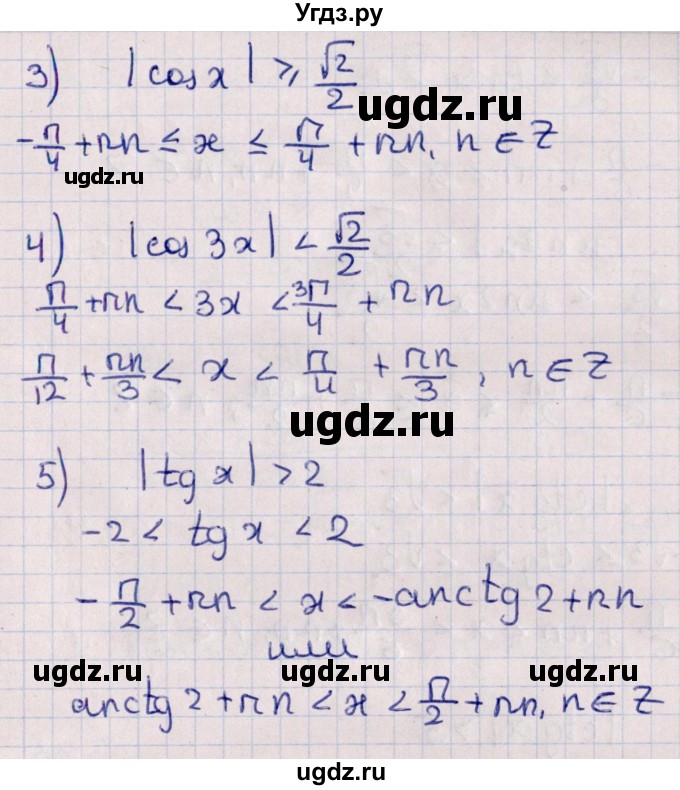 Угдз.ру
3) |cos x| ⩾ √2/2
ugdz.ru
-π/4 + πn ≤ x ≤ π/4 + πn, n ∈ Z
ugdz.ru
4) |cos 3x| < √2/2
π/4 + πn < 3x < 3π/4 + πn
π/12 + πn/3 < x < π/4 + πn/3, n ∈ Z
ugdz.ru
5) |tg x| > 2
-2 < tg x < 2
-π/2 + πn < x < -arctg 2 + πn
или
ugdz.ru ugdz.ru ugdz.ru
arctg 2 + πn < x < π/2 + πn, n ∈ Z
ugdz.ru